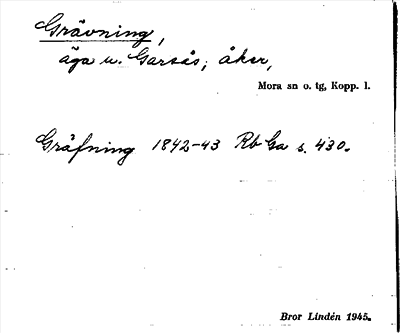 Grävning,
äga u. Garsås; åker,
Mora sn o. tg, Kopp. l.
Gräfning 1842-43 Rb Ga s. 430.
Bror Lindén 1945.